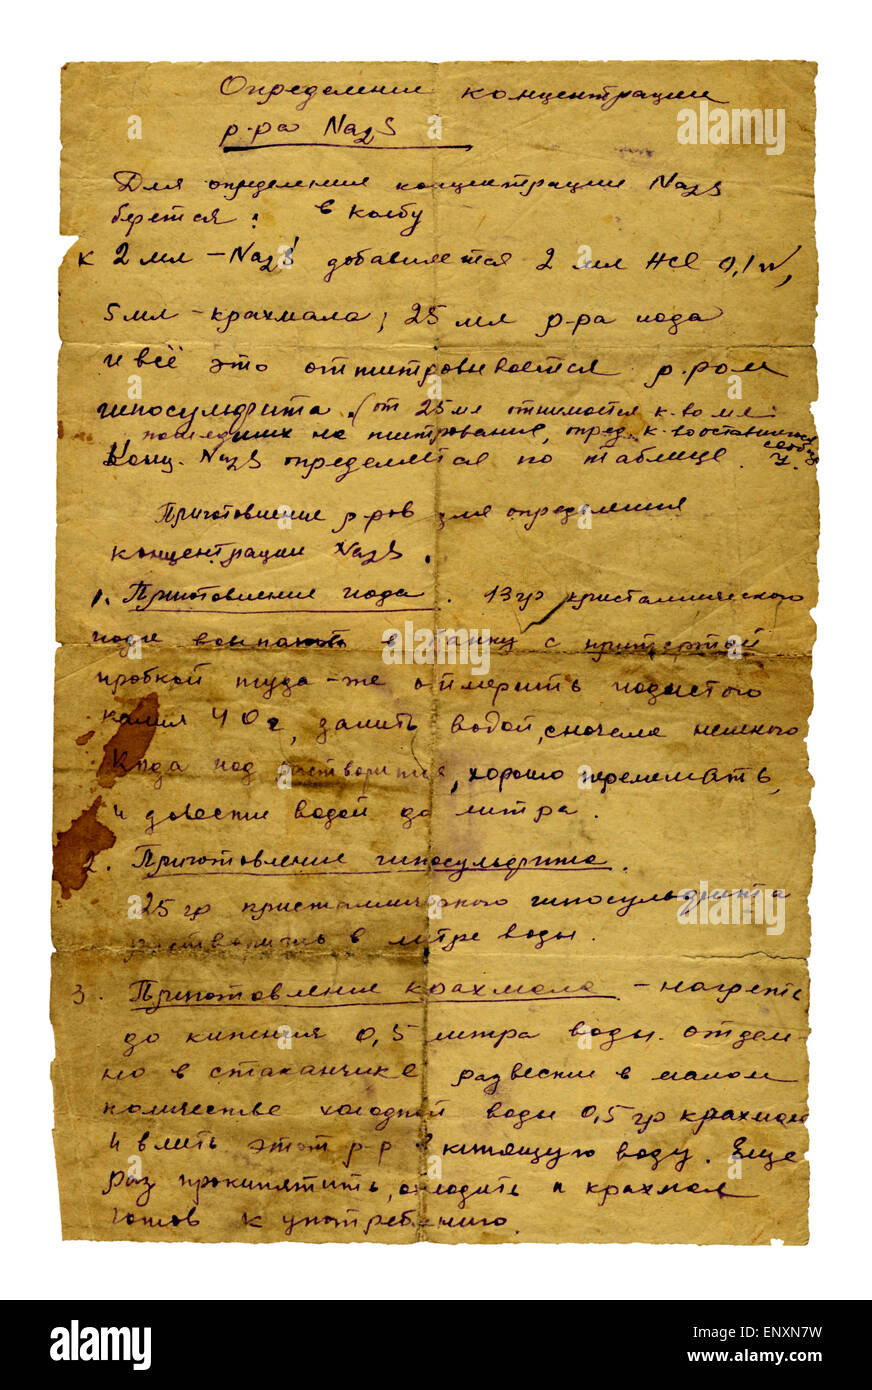 Определение концентрации
р-ра Na2S
Для определения концентрации Na2S
берется: в колбу
к 2 мл - Na2S добавляется 2 мл HCl 0,1 N,
5 мл - крахмала; 25 мл р-ра иода
и всё это оттитровывается р-ром
гипосульфита. (от 25 мл отнимается к-во мл
на титрование, опред. к-во
Конц. Na2S определяется по таблице.
Приготовление р-ров для определения
концентрации Na2S.
1. Приготовление иода. 13 гр кристаллического
иода в банку с притертой
пробкой туда-же отмерить иодистого
калия 40 г, долить водой, сначала немного
Когда иод растворится, хорошо перемешать,
и довести водой до литра.
2. Приготовление гипосульфита.
25 гр кристаллического гипосульфита
растворить в литре воды.
3. Приготовление крахмала - нагреть
до кипения 0,5 литра воды. отдель-
но в стаканчике развести в малом
количестве холодной воды 0,5 гр крахмал
и влить этот р-р в кипящую воду. Еще
раз прокипятить, охладить и крахмал
готов к употреблению.
alamy
a
alamy stock photo
ENXN7W
www.alamy.com